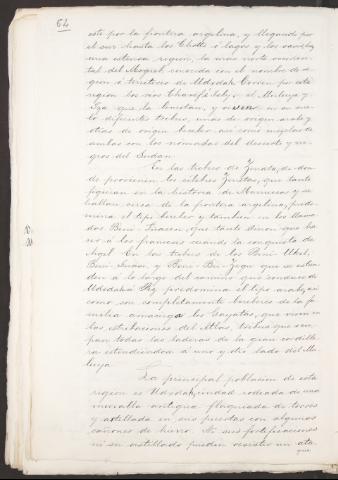 64
este por la frontera argelina, y llegando por
el sur hasta los Chotts ó lagos y los
una estensa region, la mas norte oriental
del Mogreb, conocida con el nombre de
gion ó territorio de Udsdah. Corren por esta
region los rios el Muluya y
Iza que la limitan, y viven en su sue-
lo diferentes tribus, unas de origen arabe y
otras de origen bereber así como mezclas de
ambas con los nomadas del desierto y ne-
gros del Sudan.
En las tribus de Zenata, de don-
de provienen los celebres Zenetas, que tanto
figuran en la historia de Marruecos y se
hallan cerca de la frontera argelina, predo-
mina el tipo bereber y tambien en los llama-
dos Beni-Snasen, que tanto dieron que ha-
cer á los franceses cuando la conquista de
Argel. En las tribus de los Beni-Ukil,
Beni- y Beni-Bu-Zegu que se estien-
den á lo largo del camino que conduce de
Udsdah á Fez predomina el tipo arabe, así
como son completamente bereberes de la fa-
milia amaziga los Gayatas, que viven en
las estribaciones del Atlas, tribus que ocu-
pan todas las laderas de la gran cordille-
ra estendiendose á uno y otro lado del Mu-
luya.
La principal poblacion de esta
region es Udsdah, ciudad rodeada de una
muralla antigua flanqueada de torres
y artillada en sus puertas con algunos
cañones de hierro. Ni sus fortificaciones
ni su artillado pueden resistir un ata-
que